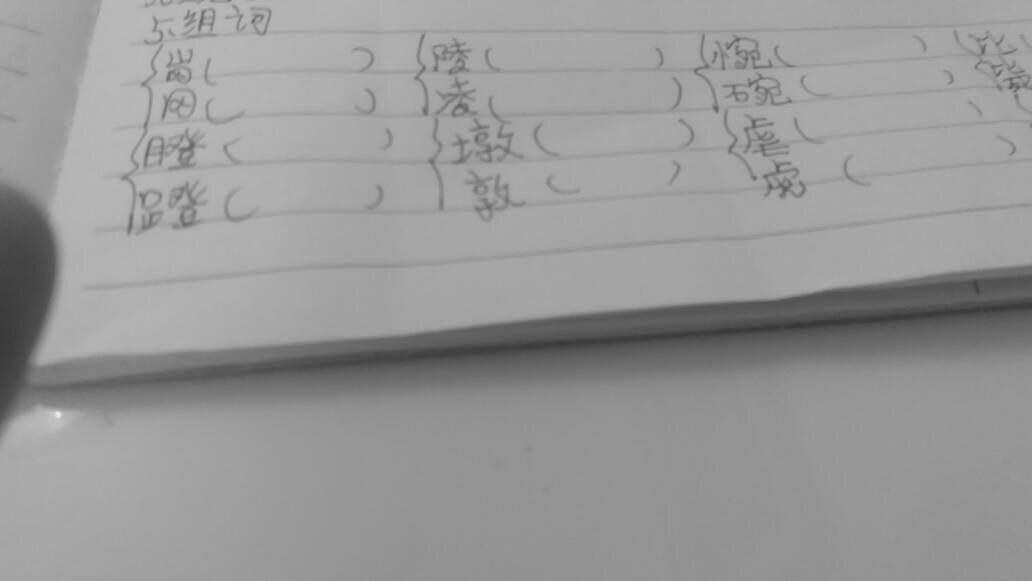 5.组词
岗(  ) 陵(  ) 惋(  )
冈(  ) 凌(  ) 碗(  )
瞪(  ) 墩(  ) 虐(  )
蹬(  ) 敦(  ) 虎(  )